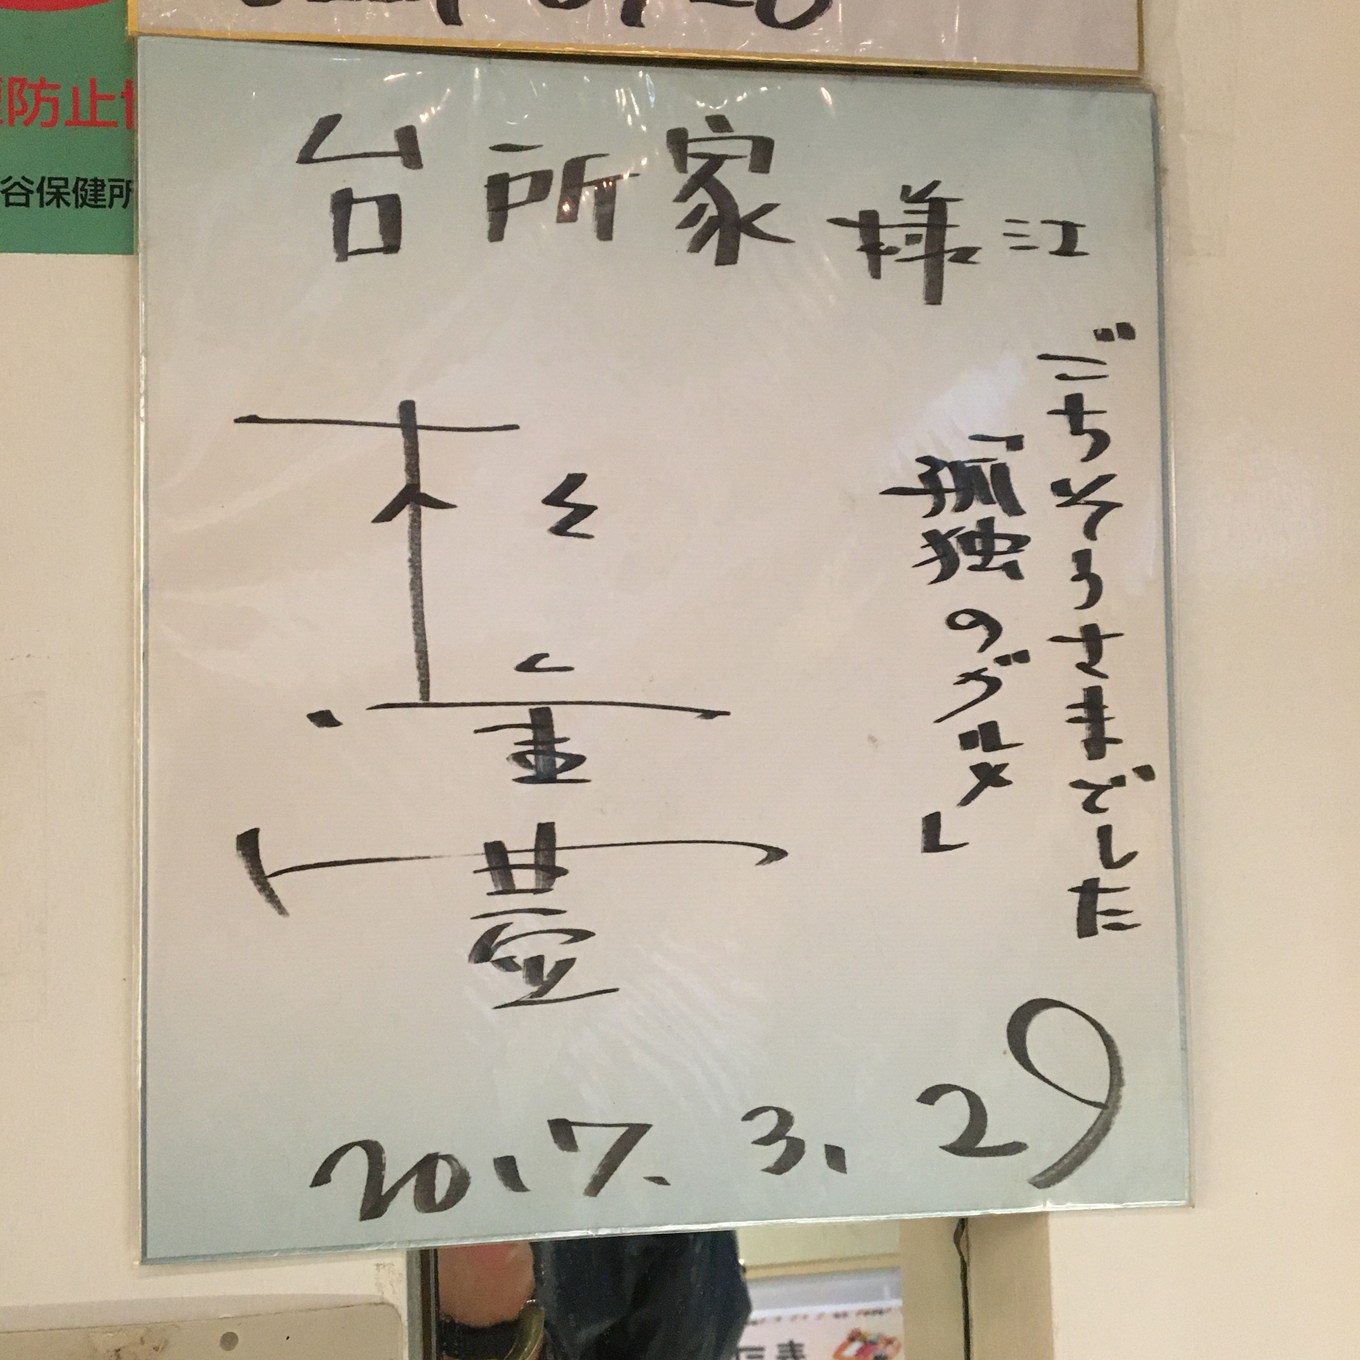 防止
谷保健所
台所家様江
ごちそうさまでした
「孤独のグルメ」
松重豊
2017.3.29